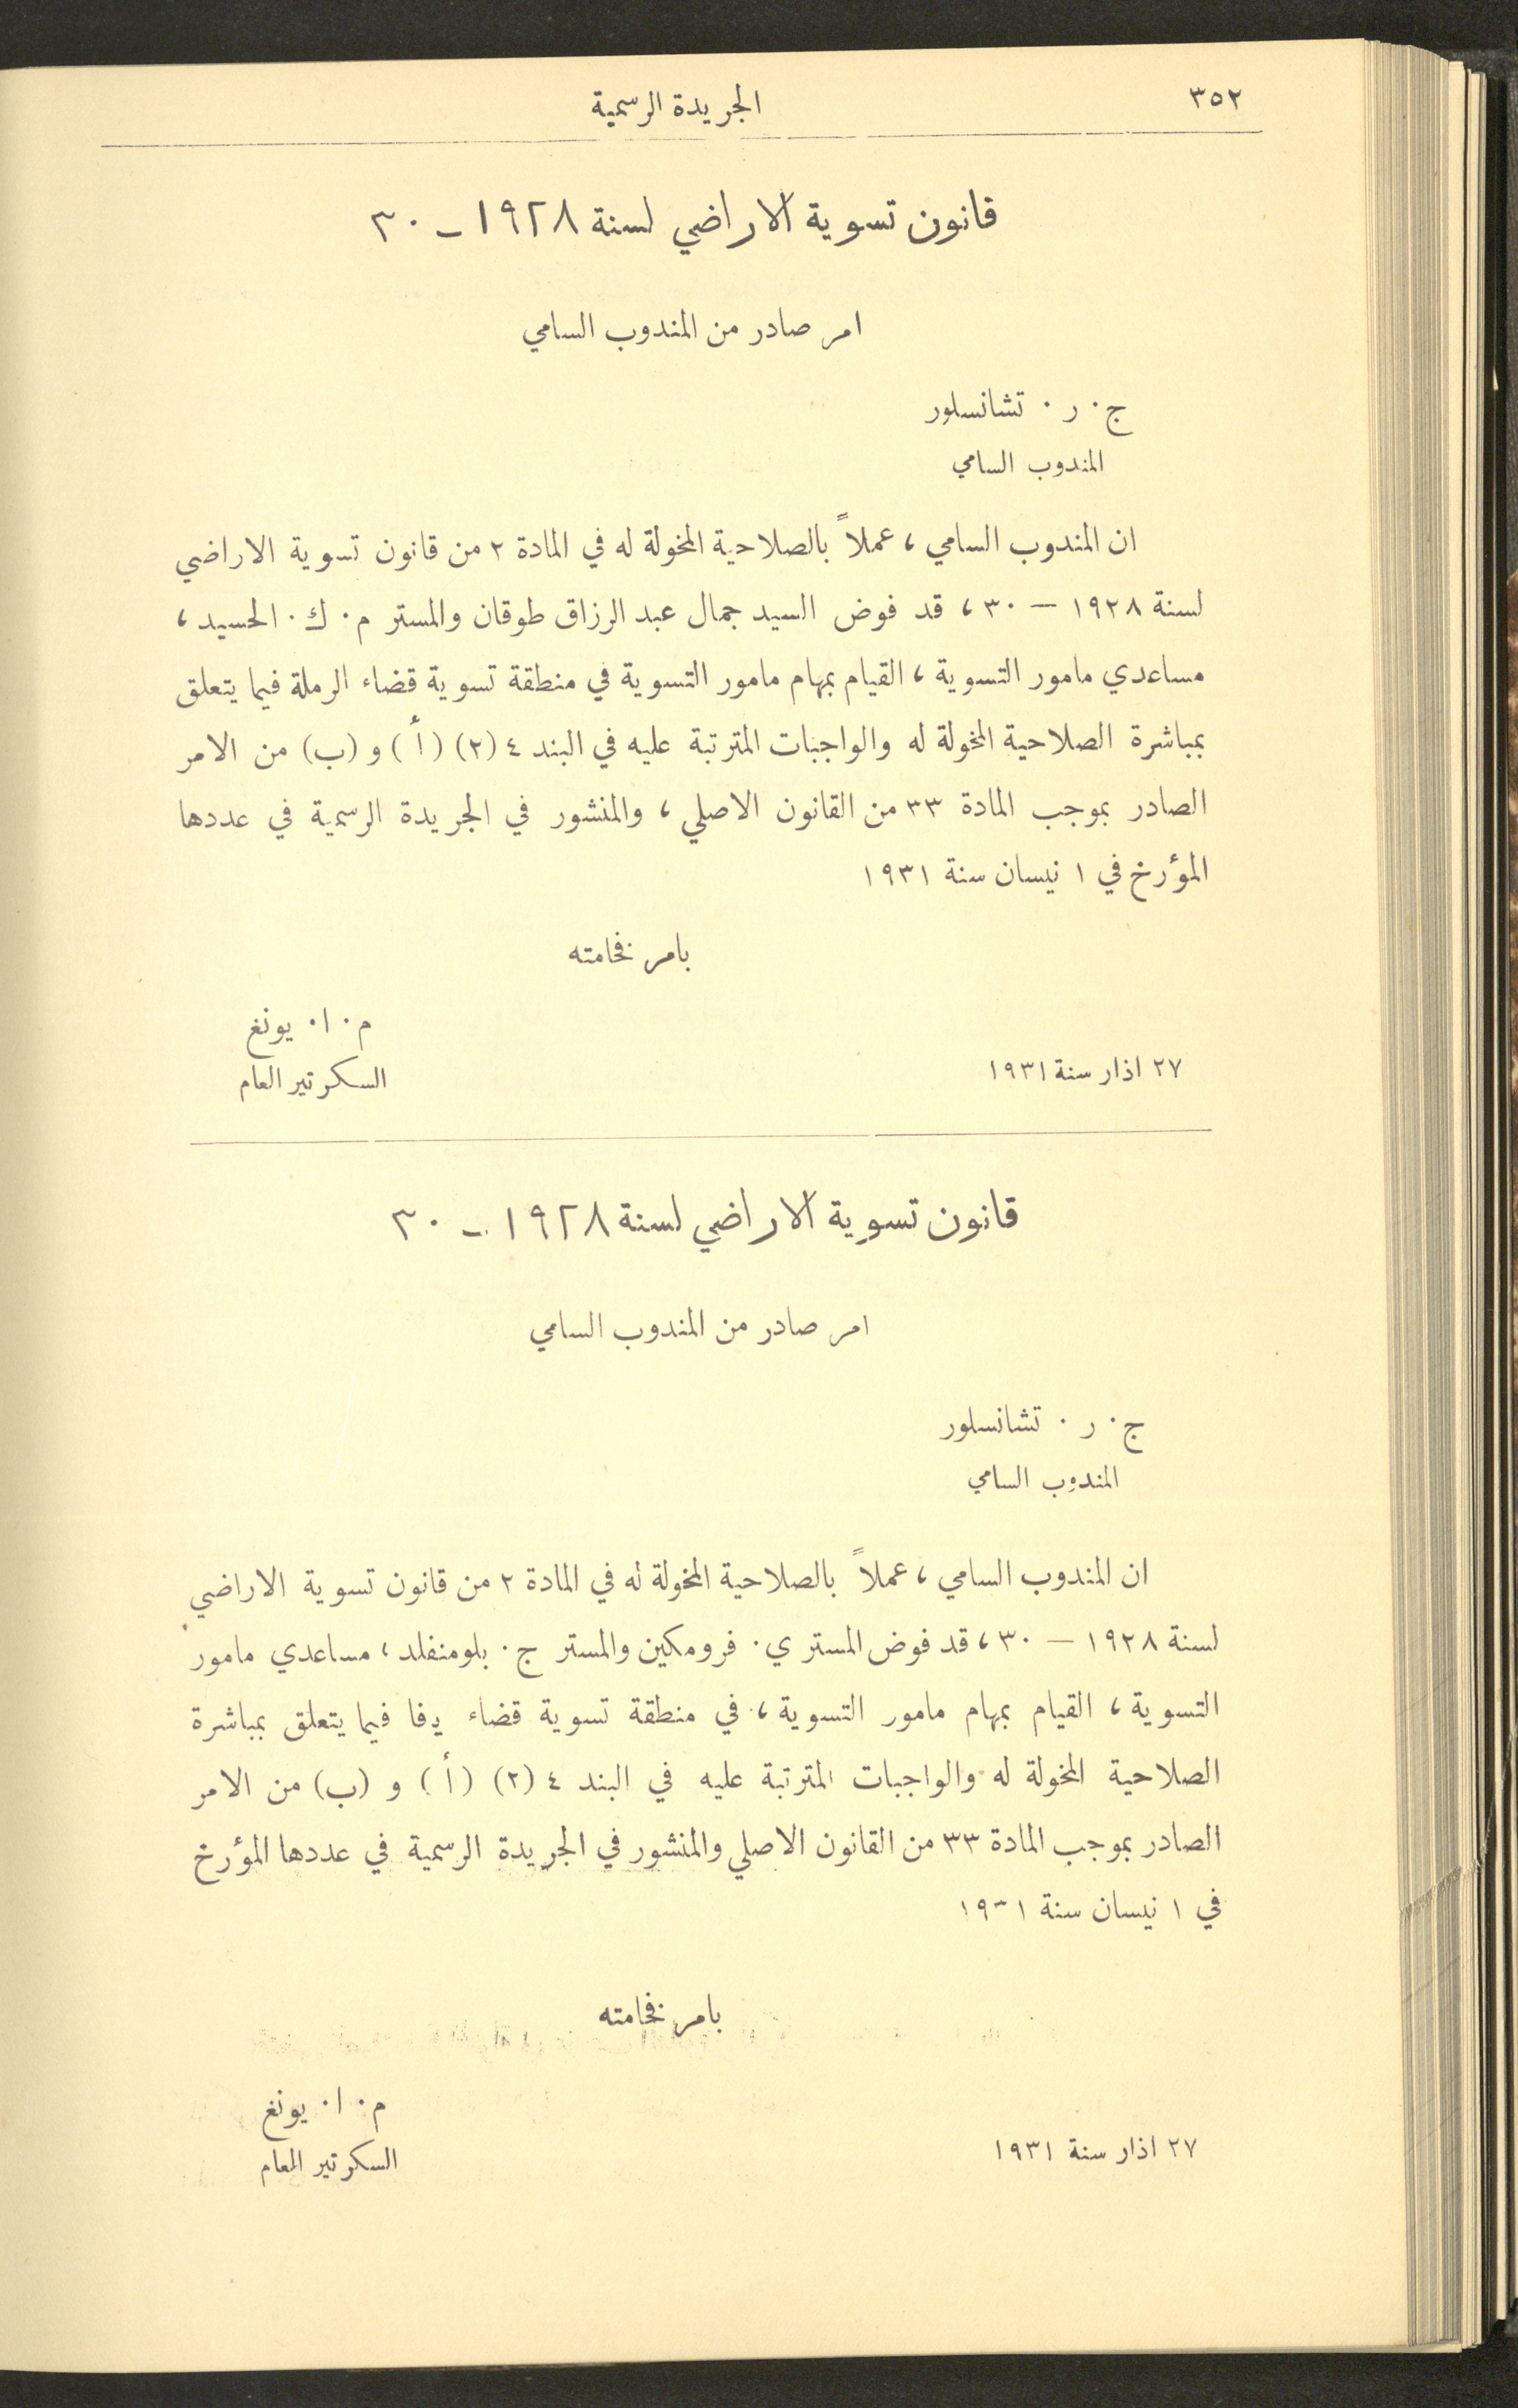 ٣٥٢
الجريدة الرسمية
قانون تسوية الاراضي لسنة ١٩٢٨ ـ ٣٠
امر صادر من المندوب السامي
ج. ر. تشانسلور
المندوب السامي
ان المندوب السامي، عملاً بالصلاحية المخولة له في المادة ٢ من قانون تسوية الاراضي
لسنة ١٩٢٨ — ٣٠، قد فوض السيد جمال عبد الرزاق طوقان والمستر م. ك. الحسيد،
مساعدي مامور التسوية، القيام بمهام مامور التسوية في منطقة تسوية قضاء الرملة فيما يتعلق
بمباشرة الصلاحية المخولة له والواجبات المترتبة عليه في البند ٤ (٢) (أ) و (ب) من الامر
الصادر بموجب المادة ٣٣ من القانون الاصلي، والمنشور في الجريدة الرسمية في عددها
المؤرخ في ١ نيسان سنة ١٩٣١
بامر فخامته
م. ا. يونغ
السكرتير العام
٢٧ اذار سنة ١٩٣١
قانون تسوية الاراضي لسنة ١٩٢٨ ـ ٣٠
امر صادر من المندوب السامي
ج. ر. تشانسلور
المندوب السامي
ان المندوب السامي، عملاً بالصلاحية المخولة له في المادة ٢ من قانون تسوية الاراضي
لسنة ١٩٢٨ — ٣٠، قد فوض المستر ي. فرومكين والمستر ج. بلومنفلد، مساعدي مامور
التسوية، القيام بمهام مامور التسوية، في منطقة تسوية قضاء يافا فيما يتعلق بمباشرة
الصلاحية المخولة له والواجبات المترتبة عليه في البند ٤ (٢) (أ) و (ب) من الامر
الصادر بموجب المادة ٣٣ من القانون الاصلي والمنشور في الجريدة الرسمية في عددها المؤرخ
في ١ نيسان سنة ١٩٣١
بامر فخامته
م. ا. يونغ
السكرتير العام
٢٧ اذار سنة ١٩٣١